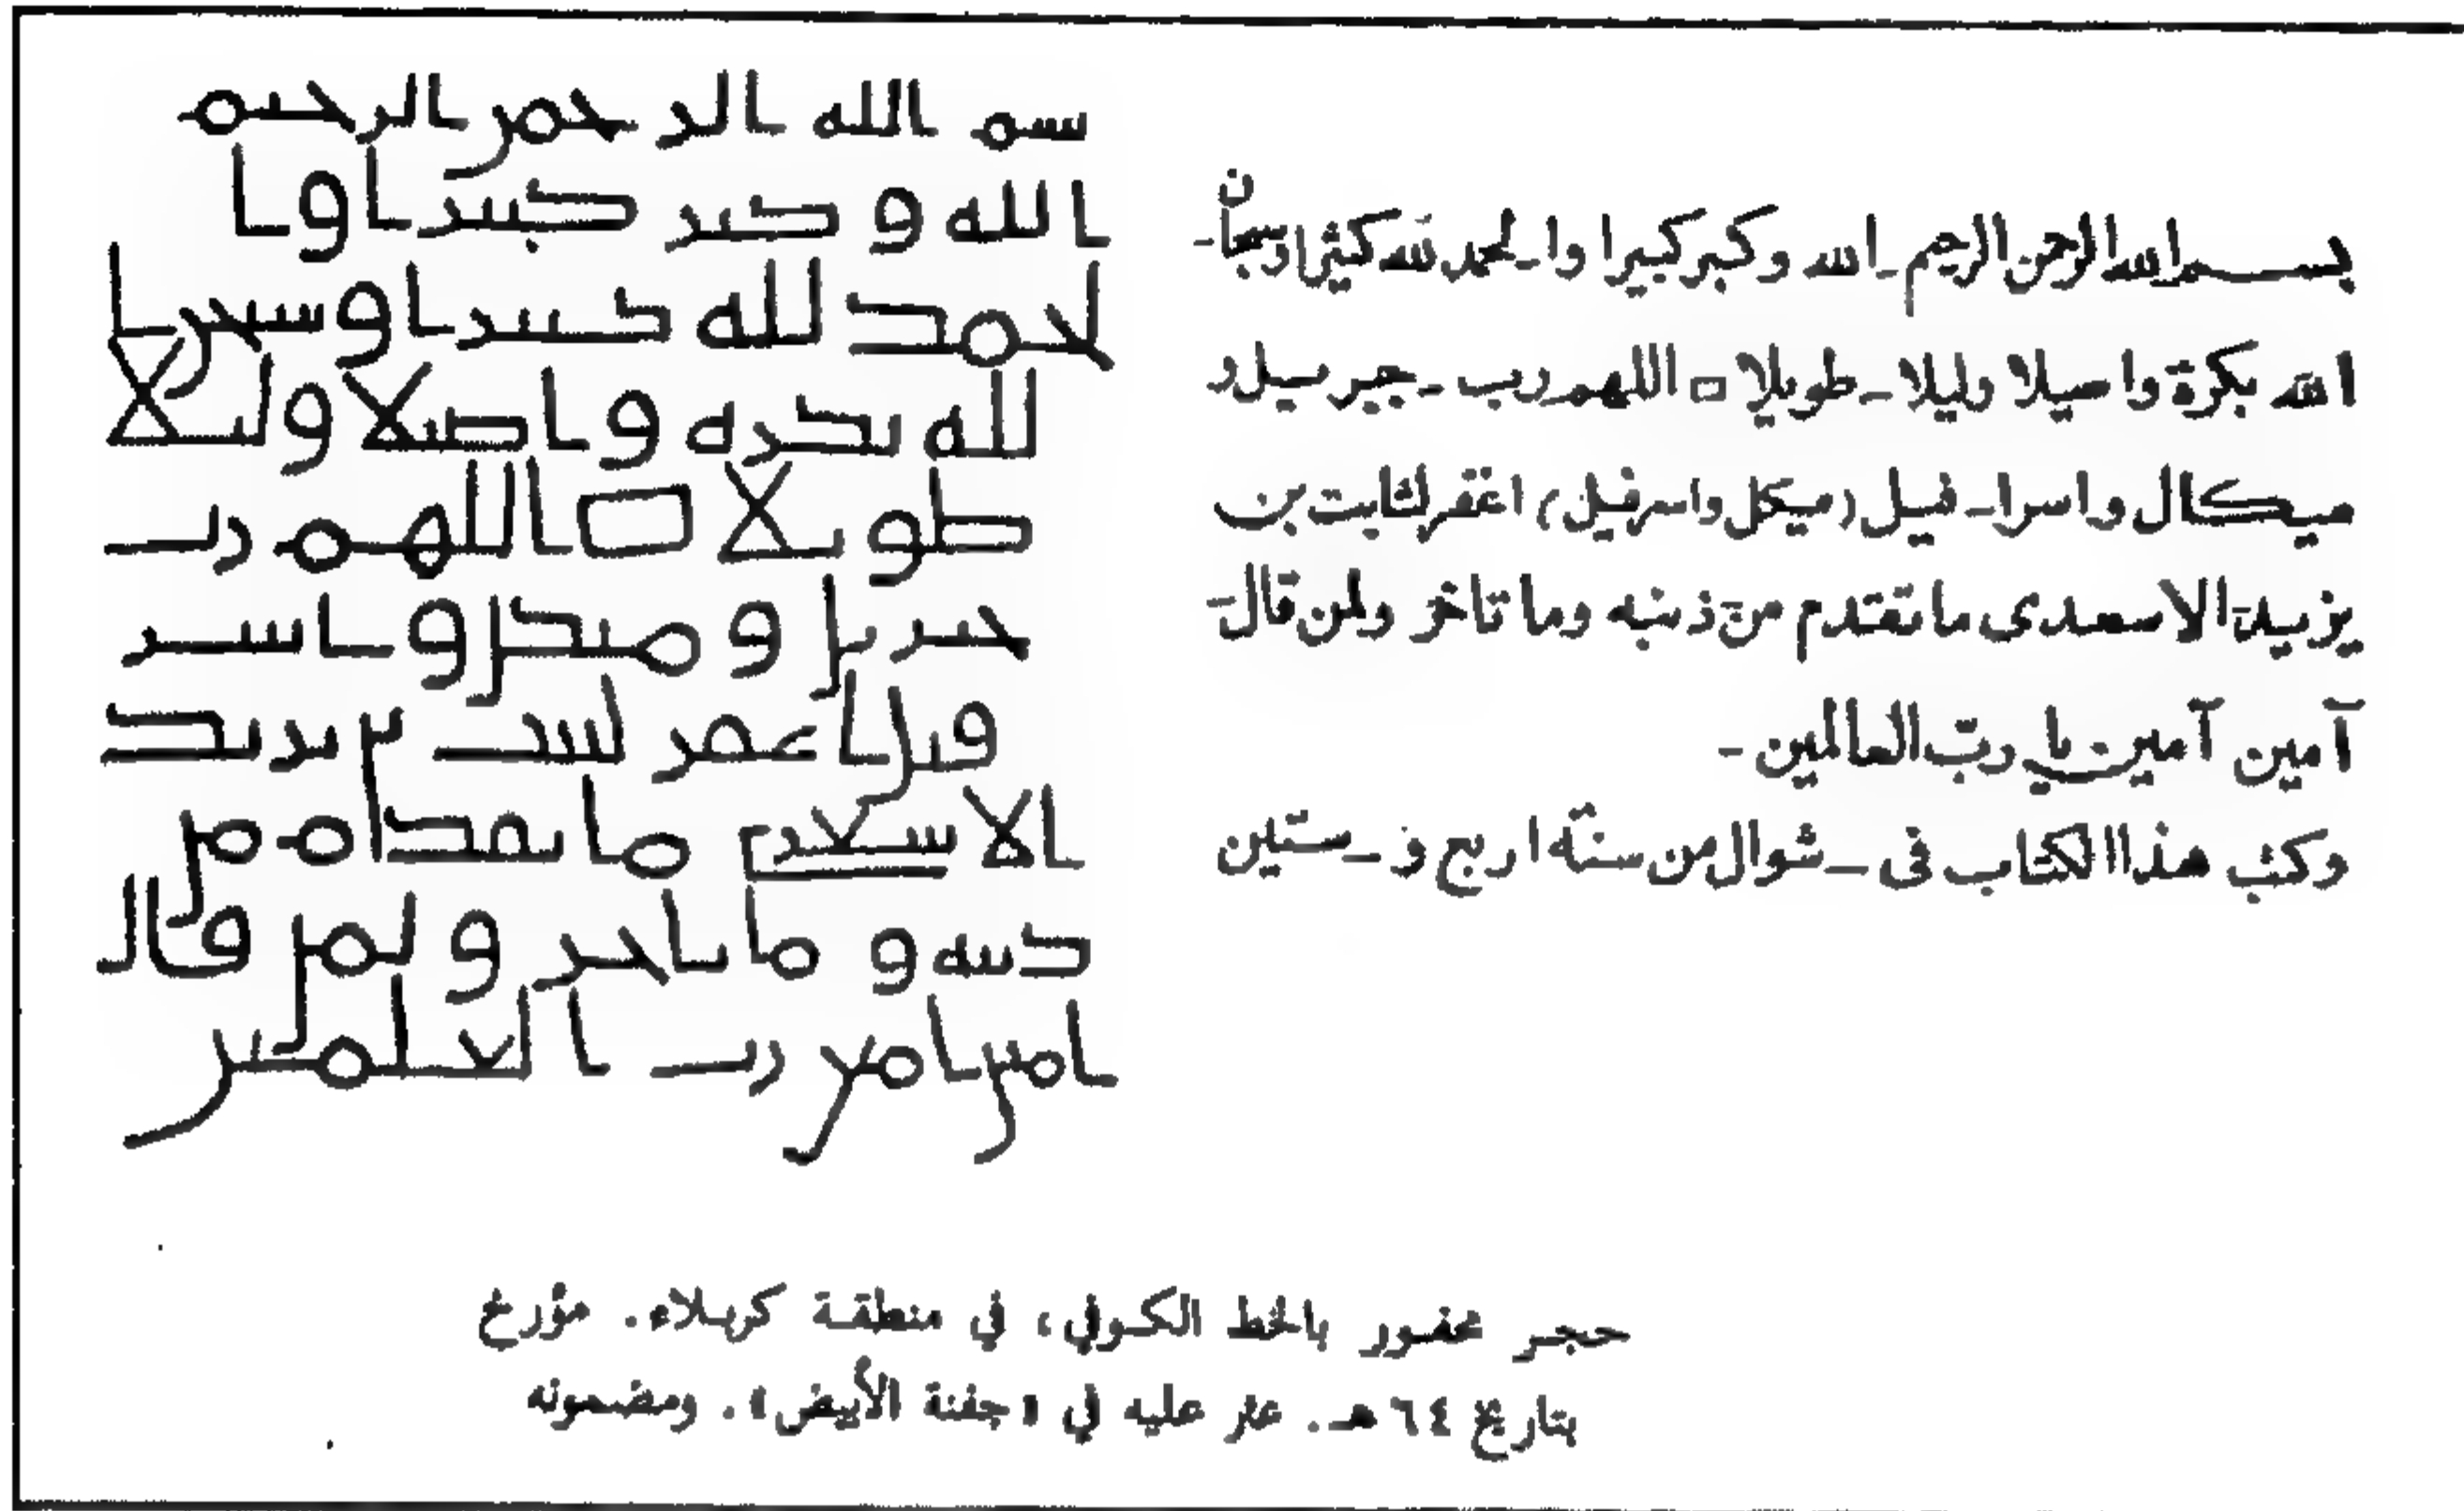 سم الله الرحمن الرحيم
الله وكبر كبيرا وا
لحمد لله كثيرا وسبحن ا
لله بكره واصيلا وليلا
طويلا ه اللهم رب
جبريل وميكل واسر
فيل اغفر لثبت بن يزيد
الاسعدي ما تقدم من
ذنبه وما تاخر ولمن قال
امين امين رب العلمين
بسم الله الرحمن الرحيم ـ الله وكبر كبيرا وا ـ لحمد لله كثيرا وسبحان ـ
الله بكرة واصيلا وليلا ـ طويلا ه اللهم رب ـ جبريل و
ميكال واسرا ـ فيل (ميكل واسرفيل) اغفر لثابت بن
يزيد الاسعدى ما تقدم من ذنبه وما تاخر ولمن قال ـ
آمين آمين يا رب العالمين ـ
وكتب هذا الكتاب فى ـ شوال من سنة اربع و ـ ستين
حجر محفور بالخط الكوفي، في منطقة كربلاء. مؤرخ
بتاريخ ٦٤ هـ. عثر عليه في «جفنة الأبيض». ومضمونه